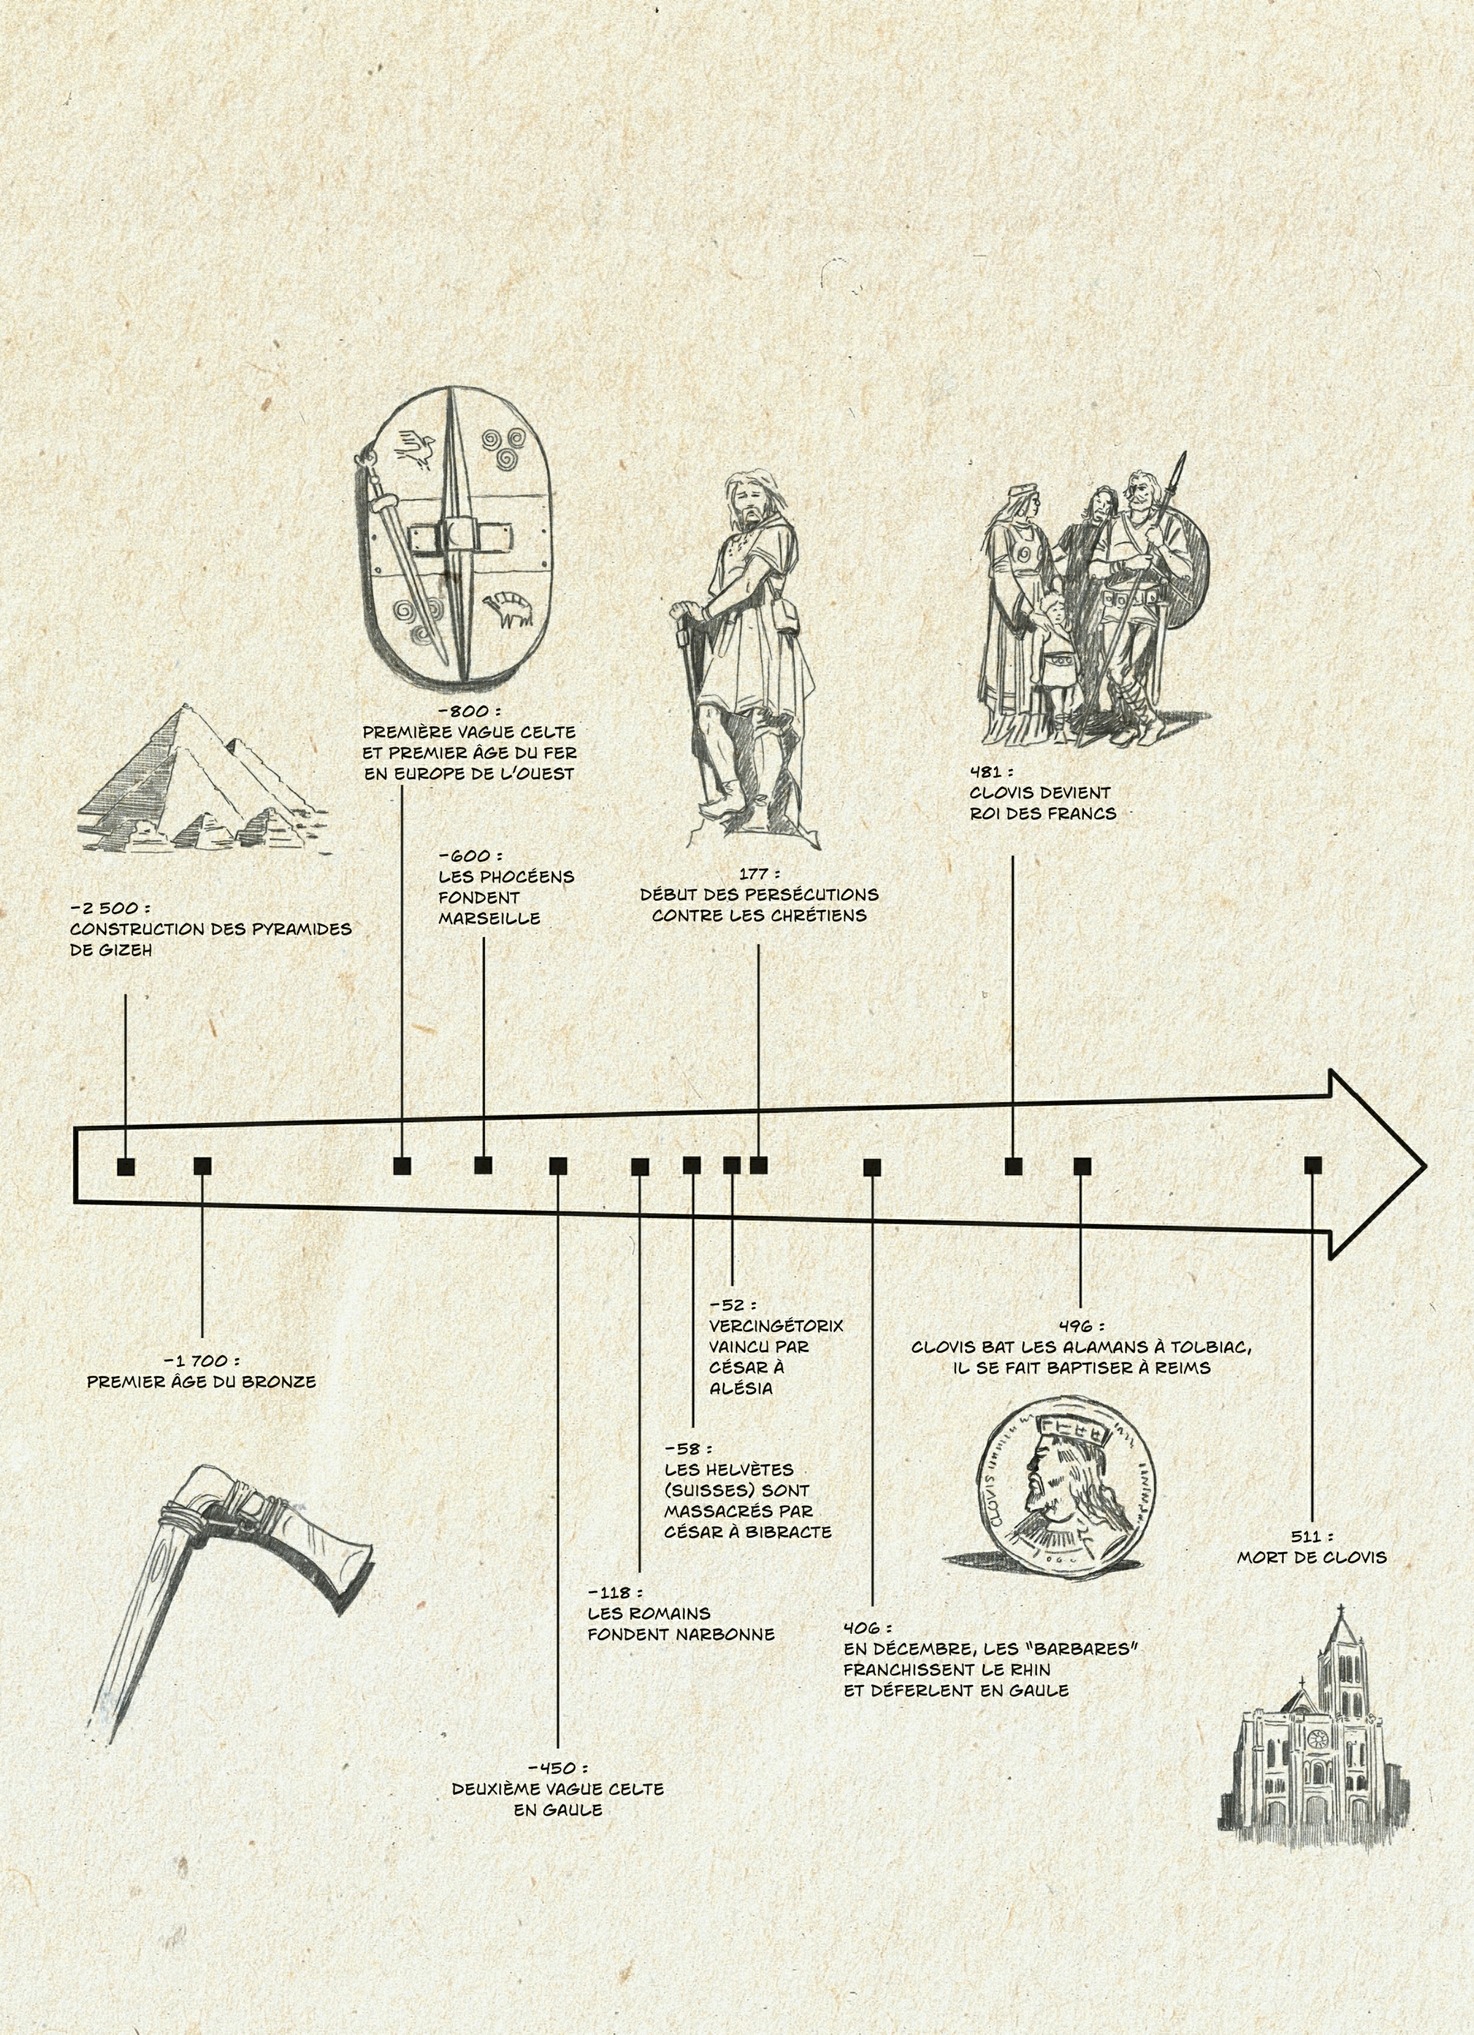 -800 :
PREMIÈRE VAGUE CELTE
ET PREMIER ÂGE DU FER
EN EUROPE DE L'OUEST
481 :
CLOVIS DEVIENT
ROI DES FRANCS
-600 :
LES PHOCÉENS
FONDENT
MARSEILLE
177 :
DÉBUT DES PERSÉCUTIONS
CONTRE LES CHRÉTIENS
-2 500 :
CONSTRUCTION DES PYRAMIDES
DE GIZEH
-52 :
VERCINGÉTORIX
VAINCU PAR
CÉSAR À
ALÉSIA
496 :
CLOVIS BAT LES ALAMANS À TOLBIAC,
IL SE FAIT BAPTISER À REIMS
-1 700 :
PREMIER ÂGE DU BRONZE
CLOVIS
-58 :
LES HELVÈTES
(SUISSES) SONT
MASSACRÉS PAR
CÉSAR À BIBRACTE
511 :
MORT DE CLOVIS
-118 :
LES ROMAINS
FONDENT NARBONNE
406 :
EN DÉCEMBRE, LES "BARBARES"
FRANCHISSENT LE RHIN
ET DÉFERLENT EN GAULE
-450 :
DEUXIÈME VAGUE CELTE
EN GAULE